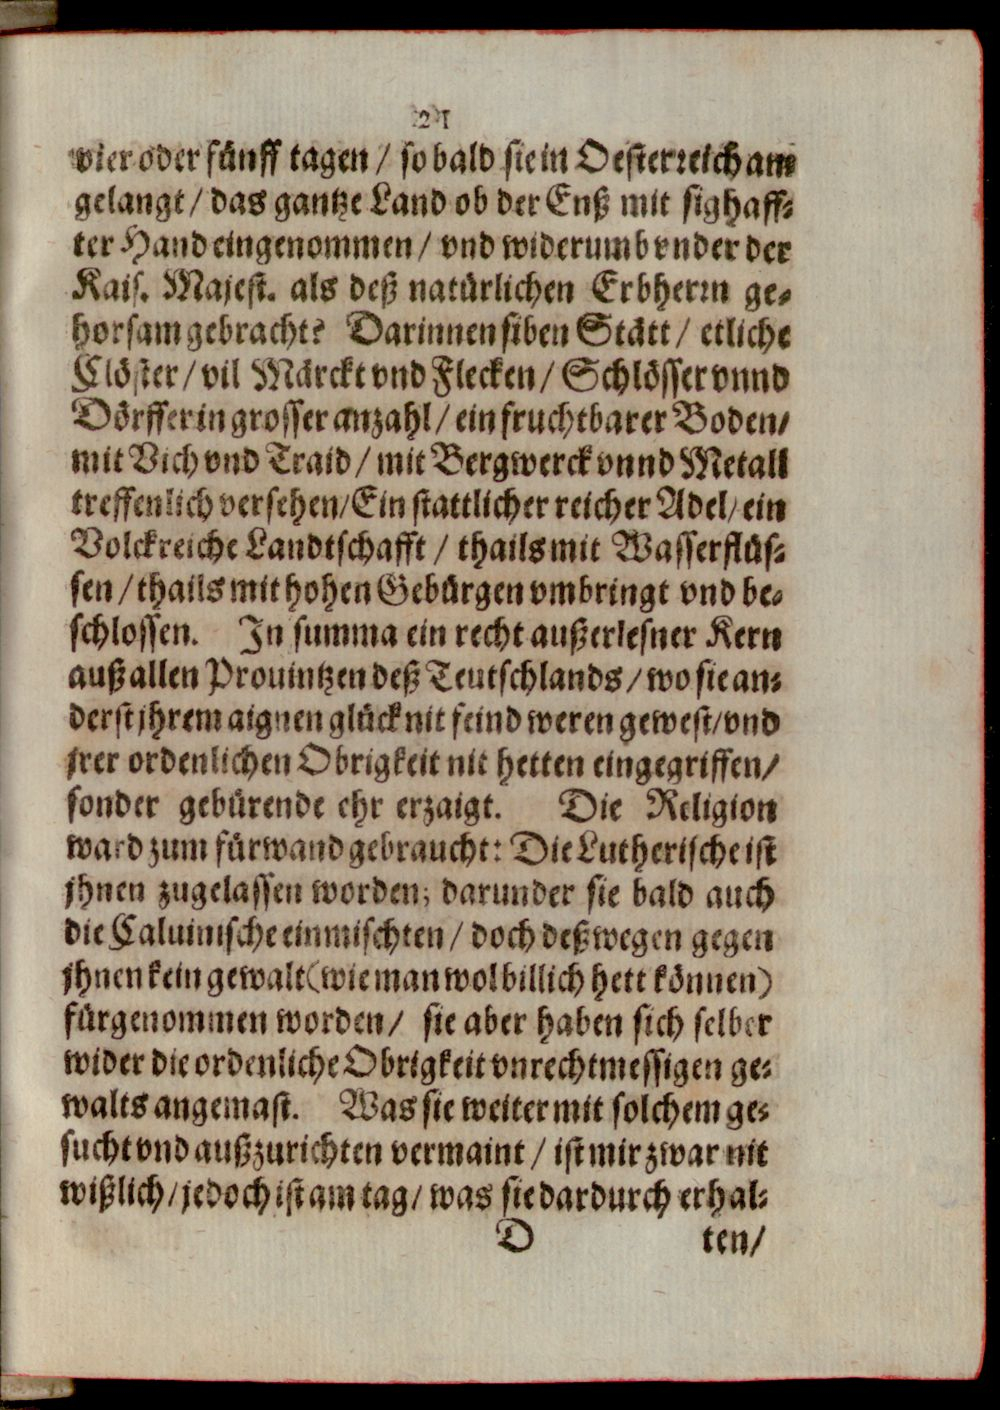 21
vier oder fünff tagen / so bald sie in Oesterreich am
gelangt / das gantze Land ob der Enß mit sighaff-
ter Hand eingenommen / vnd widerumb vnder der
Kais. Majest. als deß natürlichen Erbherrn ge-
horsam gebracht? Darinnen siben Stätt / etliche
Clöster / vil Märckt vnd Flecken / Schlösser vnnd
Dörffer in grosser anzahl / ein fruchtbarer Boden /
mit Vich vnd Traid / mit Bergwerck vnnd Metall
treffenlich versehen / Ein stattlicher reicher Adel / ein
Volckreiche Landtschafft / thails mit Wasserflüs-
sen / thails mit hohen Gebürgen vmbringt vnd be-
schlossen. In summa ein recht außerlesner Kern
auß allen Prouintzen deß Teutschlands / wo sie an-
derst jhrem aignen glück nit feind weren gewest / vnd
jrer ordenlichen Obrigkeit nit hetten eingegriffen /
sonder gebürende ehr erzaigt. Die Religion
ward zum fürwand gebraucht: Die Lutherische ist
jhnen zugelassen worden; darunder sie bald auch
die Caluinische einmischten / doch deßwegen gegen
jhnen kein gewalt (wie man wol billich hett können)
fürgenommen worden / sie aber haben sich selber
wider die ordenliche Obrigkeit vnrechtmessigen ge-
walts angemast. Was sie weiter mit solchem ge-
sucht vnd außzurichten vermaint / ist mir zwar nit
wißlich / jedoch ist am tag / was sie dardurch erhal-
D ten /